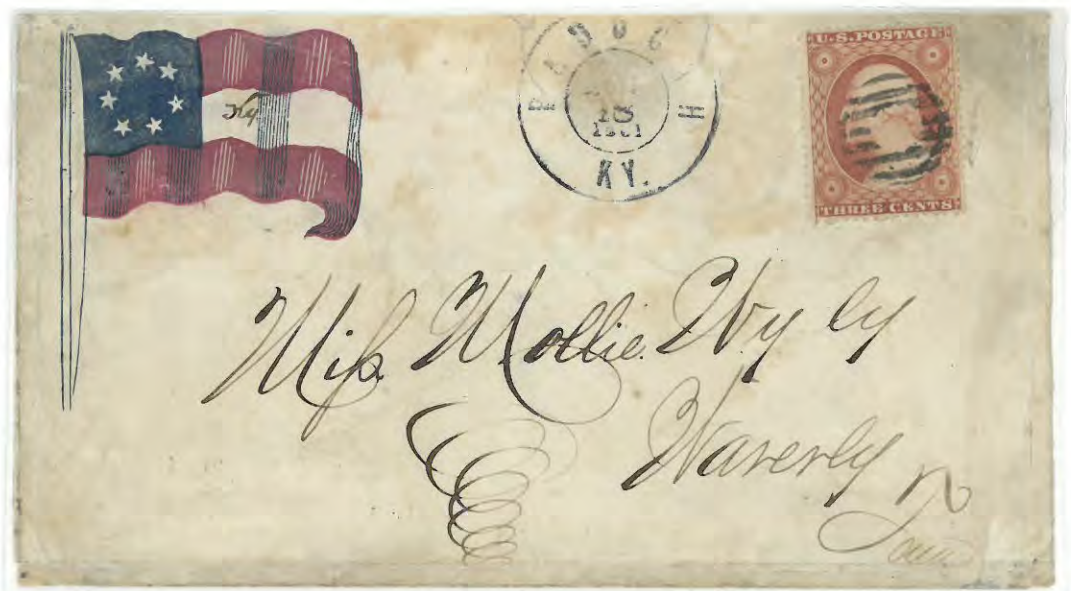 Ky
PADUCAH
1861
KY.
U.S. POSTAGE
THREE CENTS
Miss Mollie Wyly
Waverly
Tenn